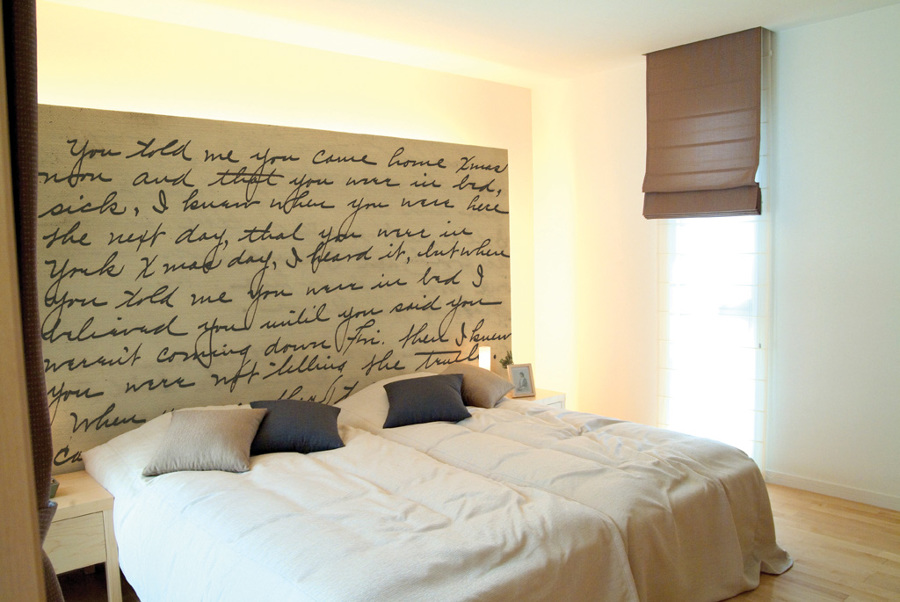 You told me you came home Xmas
noon and that you were in bed,
sick, I knew when you were here
the next day, that you were in
York Xmas day, I heard it, but when
you told me you were in bed I
believed you until you said you
weren't coming down Fri. then I knew
you were not telling the truth.
When